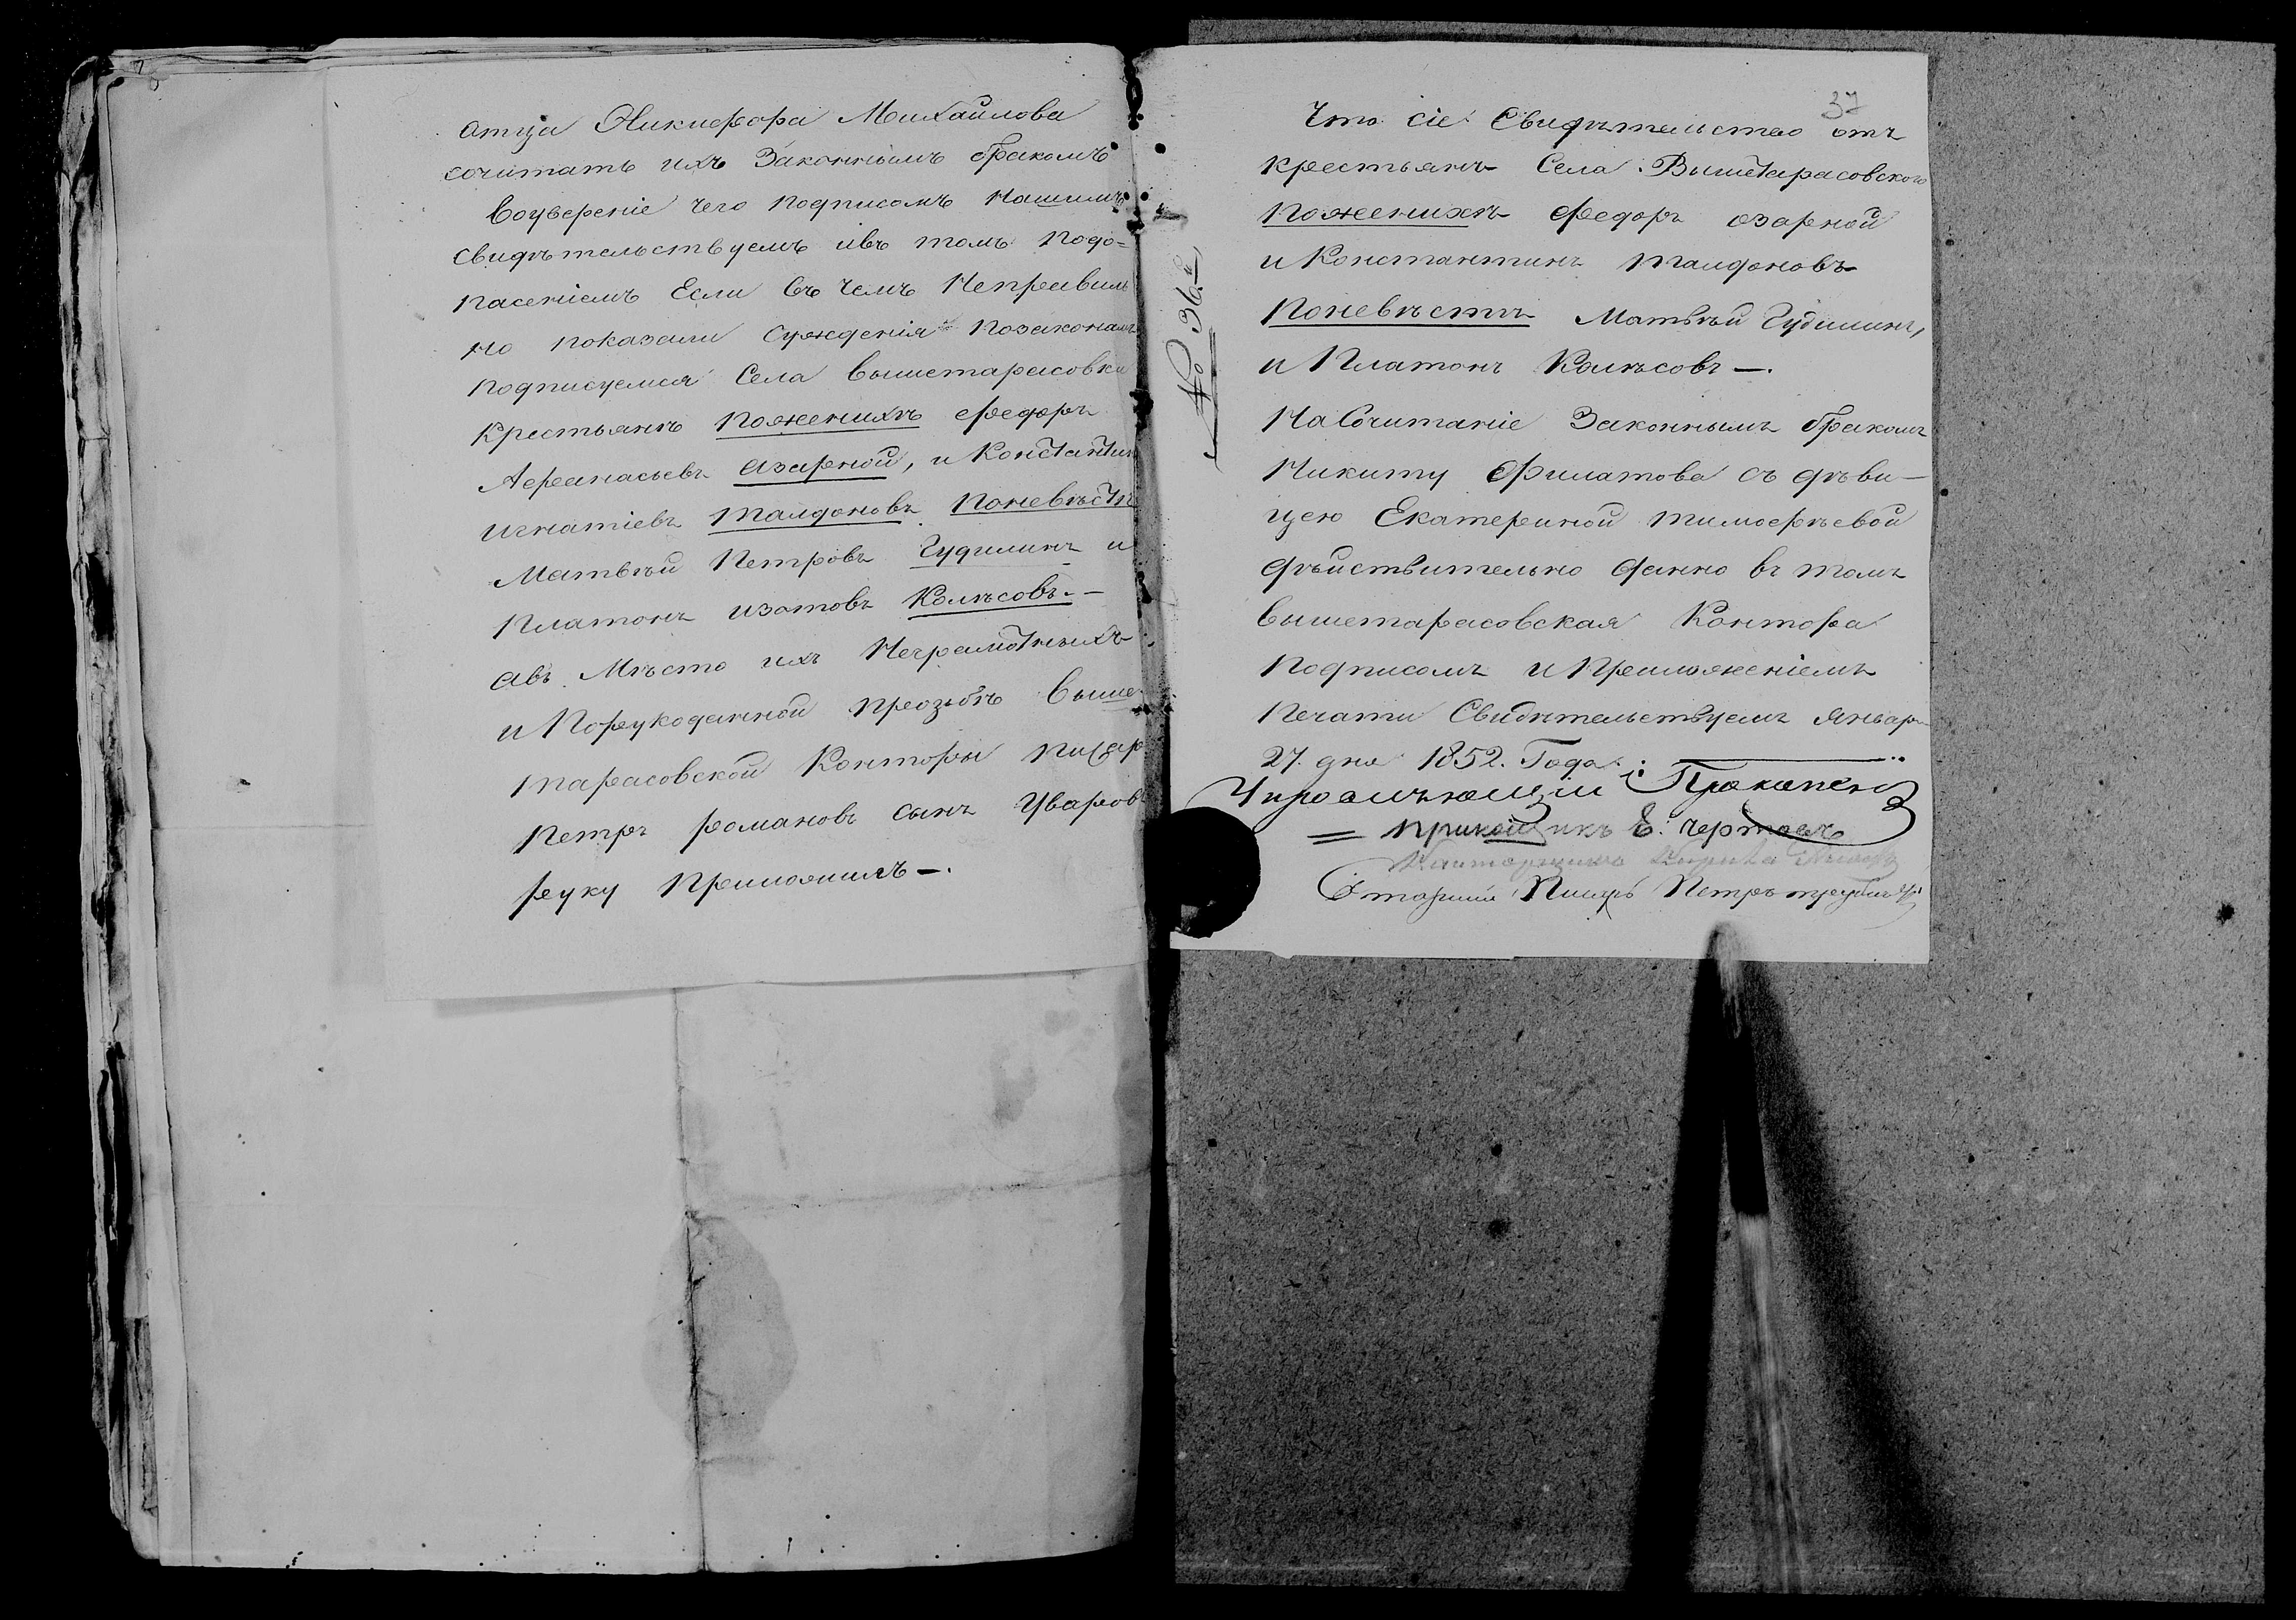 отца Никифора Михайлова
сочитать ихъ Законнымъ бракомъ
Воуверение чего подписомъ Нашимъ
свидѣтельствуемъ ивъ томъ подо-
пасениемъ Если въ чемъ Неправиль
но показали суждения позаконамъ
подписуемся Села вышетарасовки
Крестьянъ поженихѣ федоръ
Афанасьевъ азарной, и Константинъ
игнатіевъ талдоновъ поневѣстѣ
Матвѣй Петровъ Гудилинъ и
Платонъ изотовъ Колѣсовъ. —
авъ Мѣсто ихъ Неграмотныхъ
и Порукоданной прозьбѣ выше
тарасовской Конторы писарь
петръ романовъ сынъ Уваровъ
руку приложилъ —.
37
Что сіе Свидѣтельство отъ
крестьянъ Села Вышетарасовского
поженихѣ федоръ озарной
и Константинъ талдоновъ
поневѣстѣ Матвѣй Гудилинъ,
и Платонъ Колѣсовъ —.
На Сочитаніе Законнымъ бракомъ
Никиту Филатова съ дѣви-
цею Екатериной тимофѣевой
дѣйствительно данно въ томъ
вышетарасовская Контора
подписомъ и Приложеніемъ
печати Свидѣтельствуемъ январ
27. дня 1852. Года.
Прокопенко
= прикащикъ Е:
Старший Писарь Петръ
№ 36й